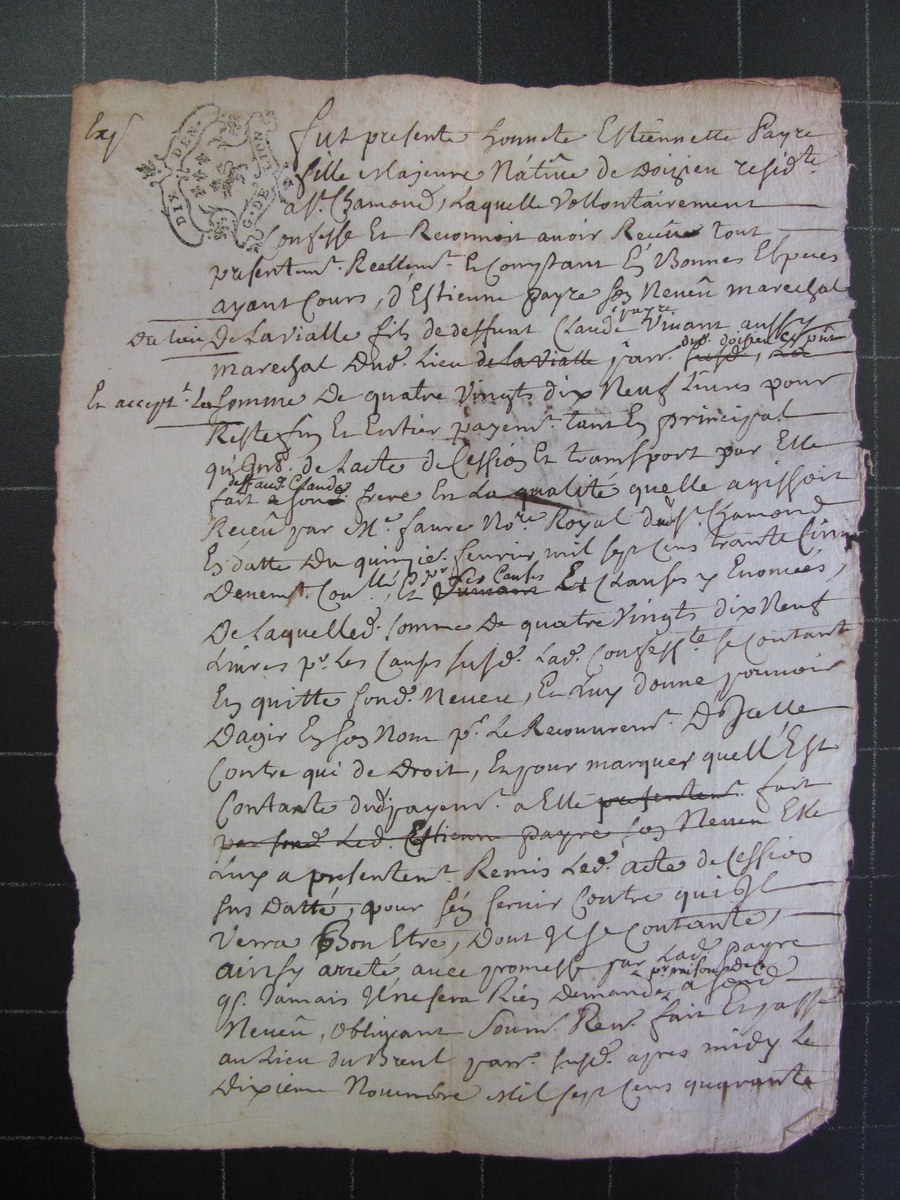 Exp
DIX DEN.
G. DE LION
fut presente honnete Estiennette Payre
fille Majeure Native de Doizieu resid.te
a S.t Chamond, Laquelle Vollontairement
Confesse Et Reconnoit avoir Receu tout
presentem.t Reellem.t Et Comptant En Bonnes Especes
ayant Cours, d'Estienne payre son Neveu marechal
payre
Du lieu De La vialle fils de deffunt Claude Vivant aussy
dud. doizieu cy pñt
marechal Dud. Lieu de la Vialle parr. susd., La
Et accept.t La Somme De quatre Vingts dix Neuf Livres pour
Reste fin Et Entier payem.t tant En principal
qu'Int. de Lacte de Cession Et transport par Elle
deffunt Claude
fait a Sond. frere En La qualité quelle agissoit
Receu par M.e faure No.re Royal dud. S.t Chamond
En datte Du quinzie. fevrier mil sept Cens trante Cinq
les Causes
Devem.t Con.llé, Et Suivant Et Clauses y Enoncées,
De Laquelle d. somme De quatre Vingts dix Neuf
Livres p.r Les Causes susd. Lad. Confess.te se Contant
En quitte Sond. Neveu, Et Luy donne pouvoir
Dagir En son Nom p.r Le Recouvrem.t D'Icelle
Contre qui de Droit, Et pour marquer quell'Est
Contante dud. payem.t a Elle presentem.t fait
par Sond. Led. Estienne payre son Neveu Elle
Luy a presentem.t Remis Led. acte de Cession
sus Datté, pour s'en servir Contre qui Il
Verra Bon Etre, Dont Il se Contante,
ainsy arreté avec promesse par Lad. payre
p.r raison de ce
q.e Jamais Il ne sera Rien Demandé a Sond.
Neveu, obligeant Soum. Ren. fait Et passé
au Lieu du Breul parr. susd. apres midy Le
Dixieme Novembre Mil sept Cens quarante